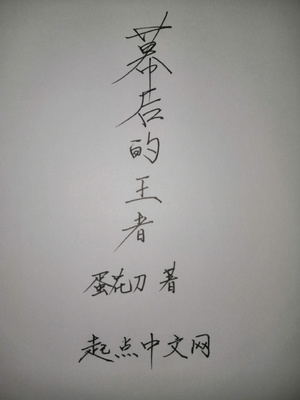 幕后的王者
蛋花刀 著
起点中文网